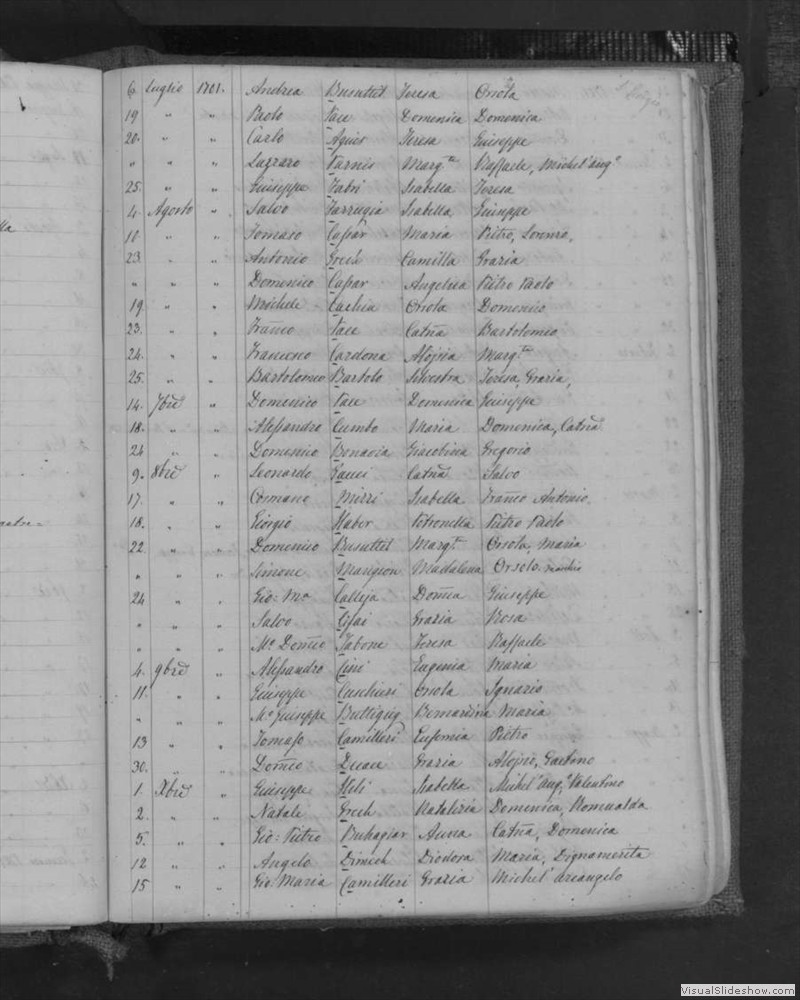 6 Luglio 1701. Andrea Busuttil Teresa Orsola
19 " " Paolo Pace Domenica Domenica
20. " " Carlo Agius Teresa Giuseppe
" " " Lazzaro Farnis Marg.ta Raffaele, Michel'Ang.o
25. " " Giuseppe Fabri Isabella Teresa
4. Agosto " Salvo Farrugia Isabella Giuseppe
10 " " Tomaso Cassar Maria Pietro, Lorenzo,
23 " " Antonio Grech Camilla Grazia
" " " Domenico Cassar Angelica Pietro Paolo
19. " " Michele Cachia Orsola Domenico
23. " " Franco Pace Catna Bartolomeo
24. " " Francesco Cardona Aloisia Marg.ta
25. " " Bartolomeo Bartolo Silvestra Teresa, Grazia,
14. 7bre " Domenico Pace Domenica Giuseppe
18. " " Alessandro Cumbo Maria Domenica, Catna
24 " " Domenico Benavia Giacobina Gregorio
9. 8bre " Leonardo Catna Salvo
17. " " Cosmano Mizzi Isabella Franco Antonio
18. " " Giorgio Haber Petronella Pietro Paolo
22 " " Domenico Busuttil Marg.ta Orsola, Maria
" " " Simone Mangion Madalena Orsolo
24 " " Gio: Ma Calleja Domca Giuseppe
" " " Salvo Grazia Rosa
" " " Mo Domco Tabone Teresa Raffaele
4. 9bre " Alessandro Cini Eugenia Maria
11. " " Giuseppe Cuschieri Orsola Ignazio
" " " Mo Giuseppe Buttigieg Bernardina Maria
13 " " Tomaso Camilleri Eufemia Pietro
30. " " Domco Grazia Aloisio, Gaetano
1. Xbre " Giuseppe Isabella Michel'Ang.o Valentino
2. " " Natale Grech Natalizia Domenica, Romualda
5. " " Gio: Pietro Buhagiar Anna Catna, Domenica
12 " " Angelo Dimech Diodora Maria, Dignamerita
15 " " Gio Maria Camilleri Grazia Michel'Arcangelo
VisualSlideshow.com